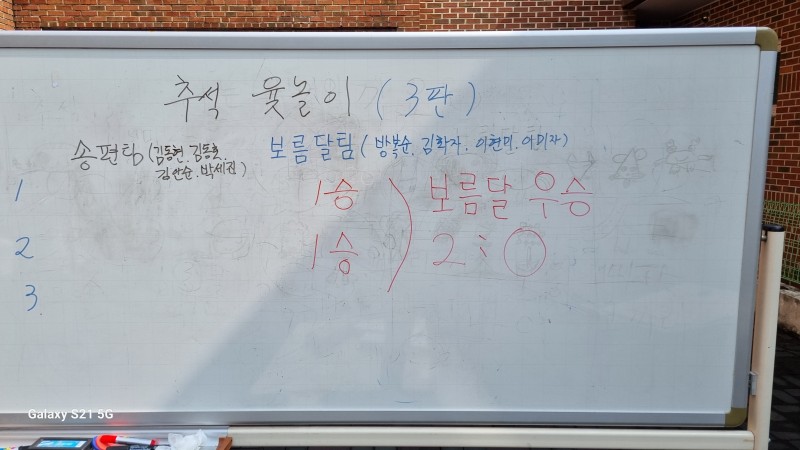 추석 윷놀이 (3판)
송편팀 (김동현, 김동호,
김안순, 박세진)
보름달팀 (방복순, 김학자, 이현미, 이미자)
1 1승
2 1승
3.
보름달 우승
2 : 0
Galaxy S21 5G